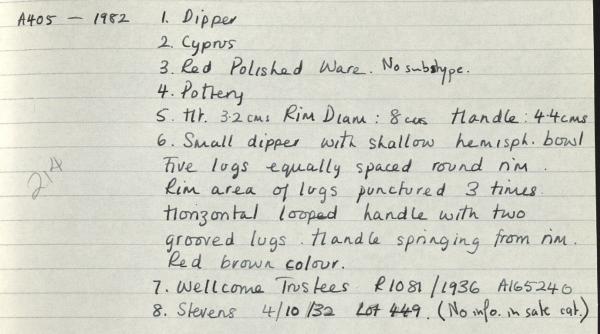 A405 — 1982 1. Dipper
2. Cyprus
3. Red Polished Ware. No subtype.
4. Pottery
5. Ht. 3.2cms Rim Diam: 8cms Handle: 4.4cms
6. Small dipper with shallow hemisph. bowl
Five lugs equally spaced round rim.
Rim area of lugs punctured 3 times.
Horizontal looped handle with two
grooved lugs. Handle springing from rim.
Red brown colour.
214
7. Wellcome Trustees R1081/1936 A165240
8. Stevens 4/10/32 Lot 449. (No info. in sale cat.)